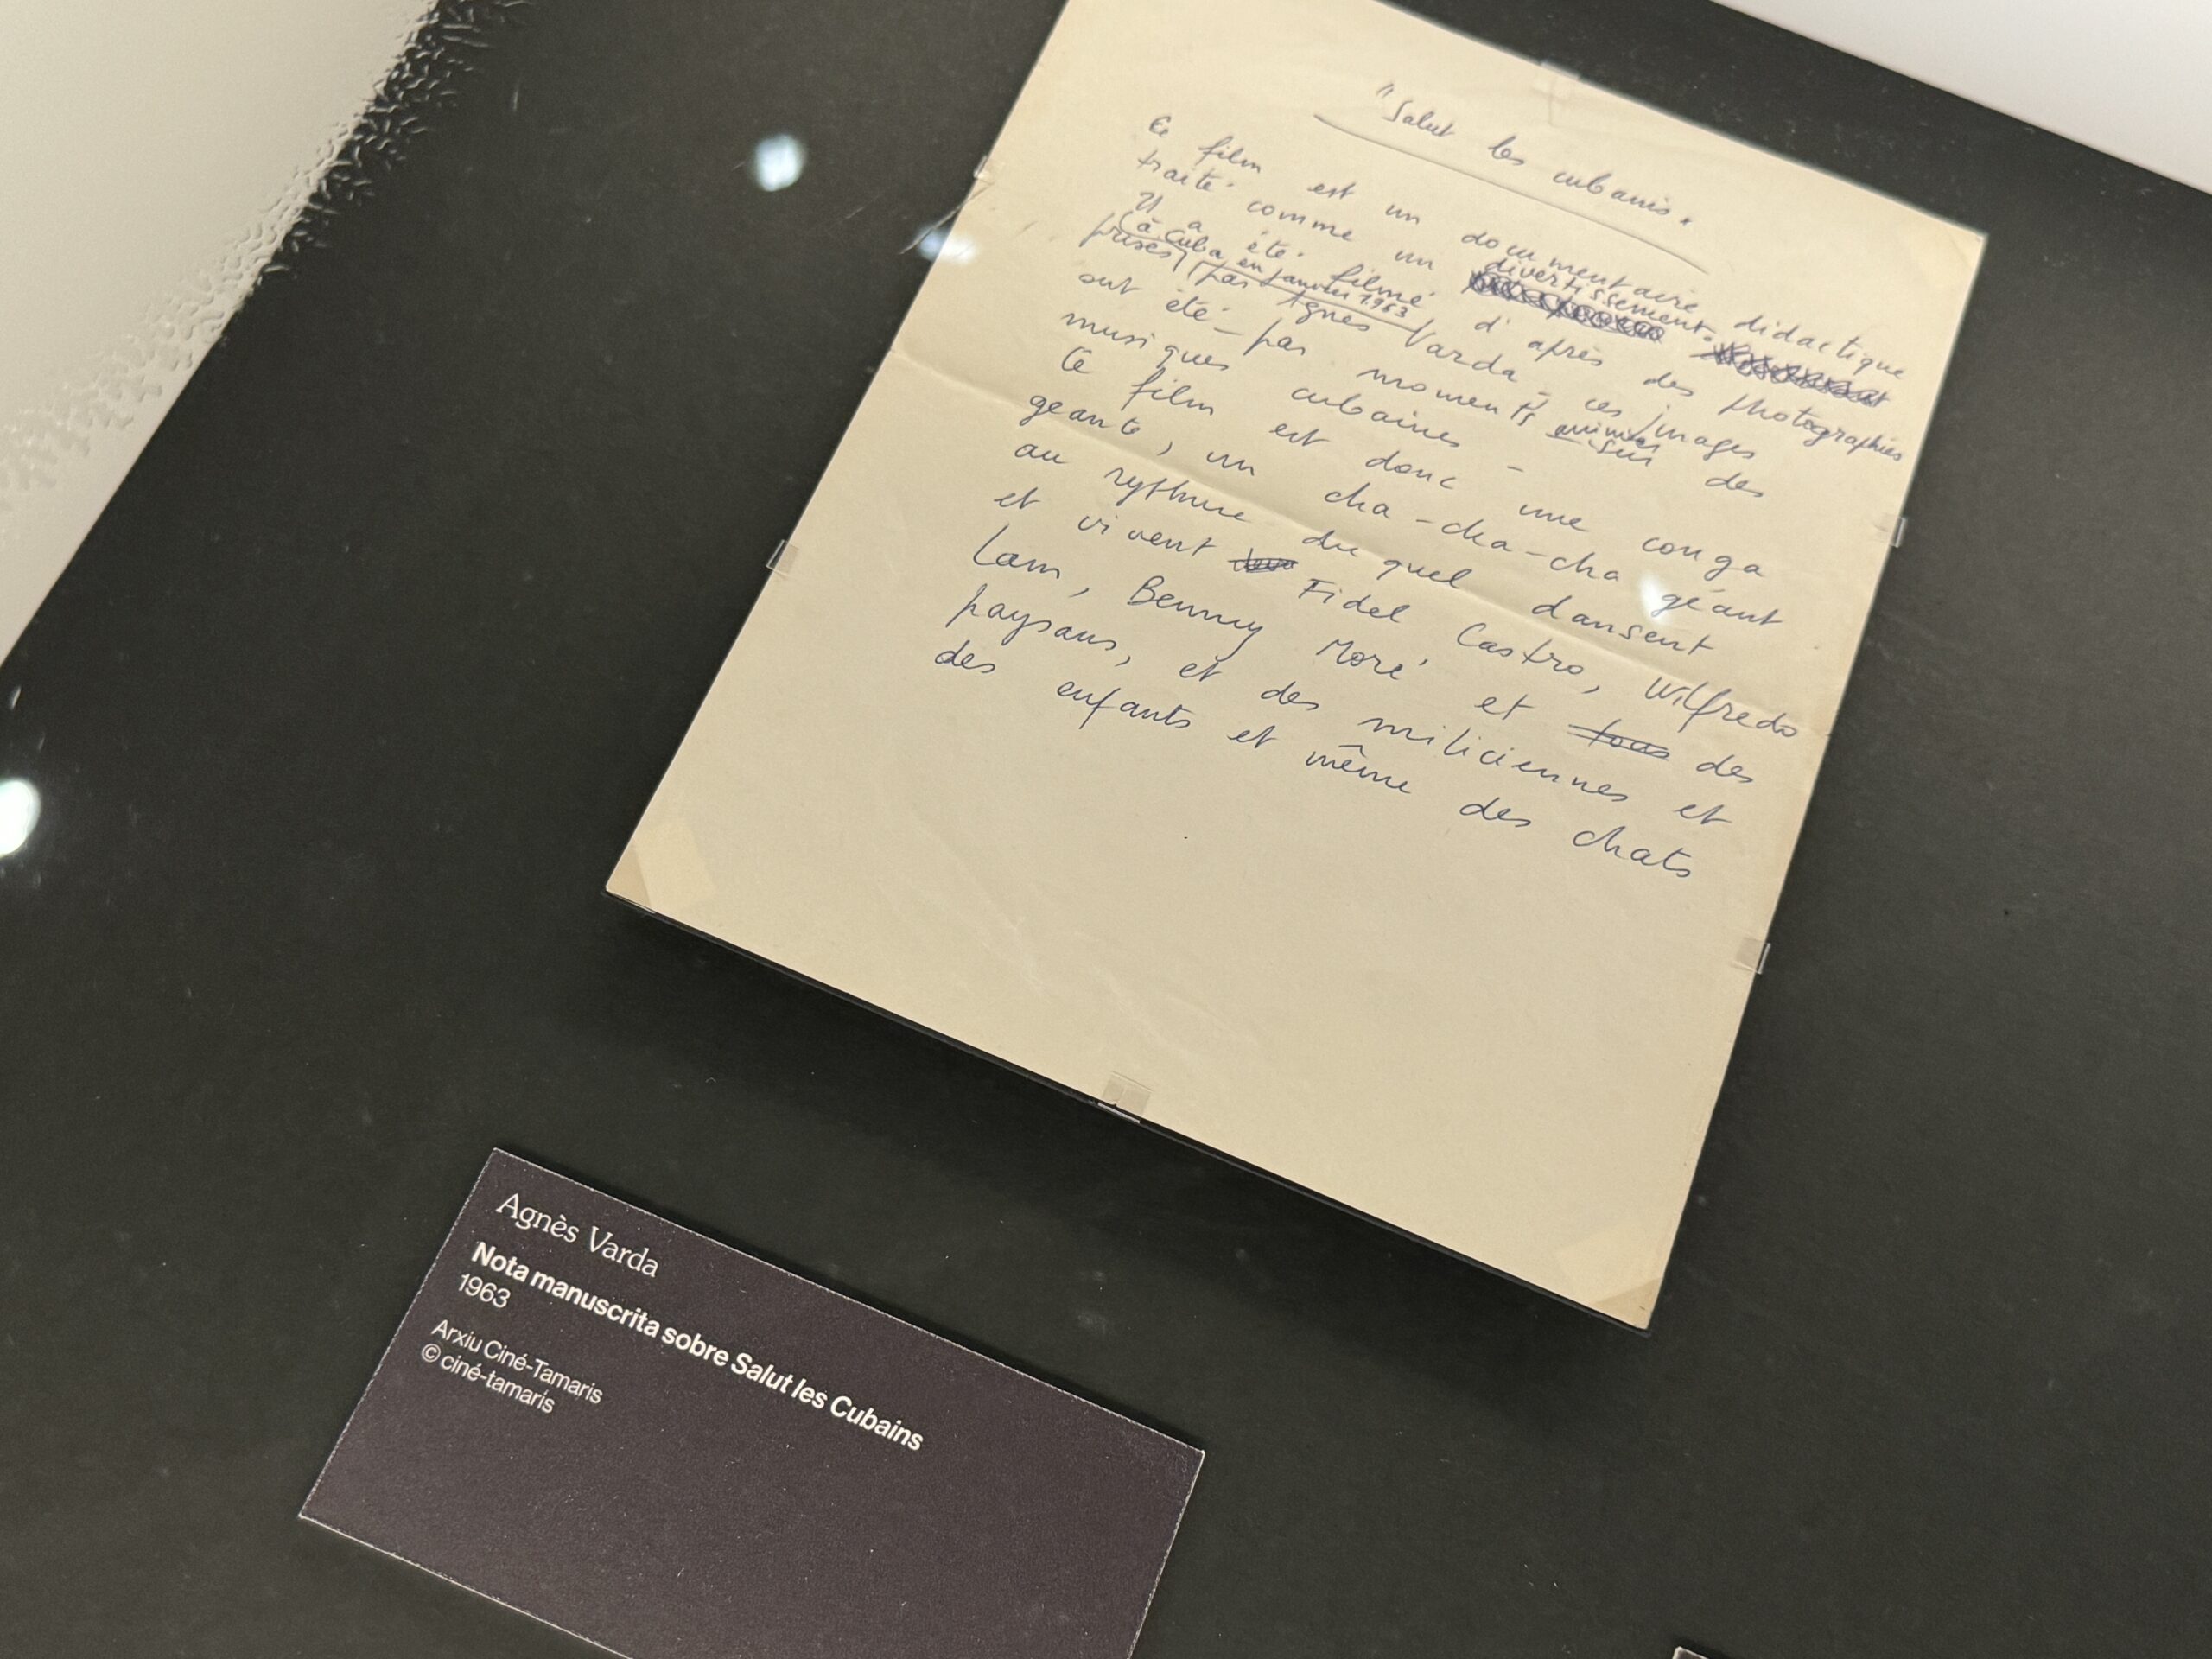 "Salut les cubains"
Ce film est un documentaire didactique
traité comme un divertissement.
Il a été filmé d'après des photographies
à Cuba en janvier 1963
prises, par Agnès Varda - ces images
ont été - par moments animées sur des
musiques cubaines -
Ce film est donc une conga
géante, un cha-cha-cha géant
au rythme duquel dansent
et vivent Fidel Castro, Wilfredo
Lam, Benny Moré et tous des
paysans, et des miliciennes et
des enfants et même des chats
Agnès Varda
Nota manuscrita sobre Salut les Cubains
1963
Arxiu Ciné-Tamaris
© ciné-tamaris